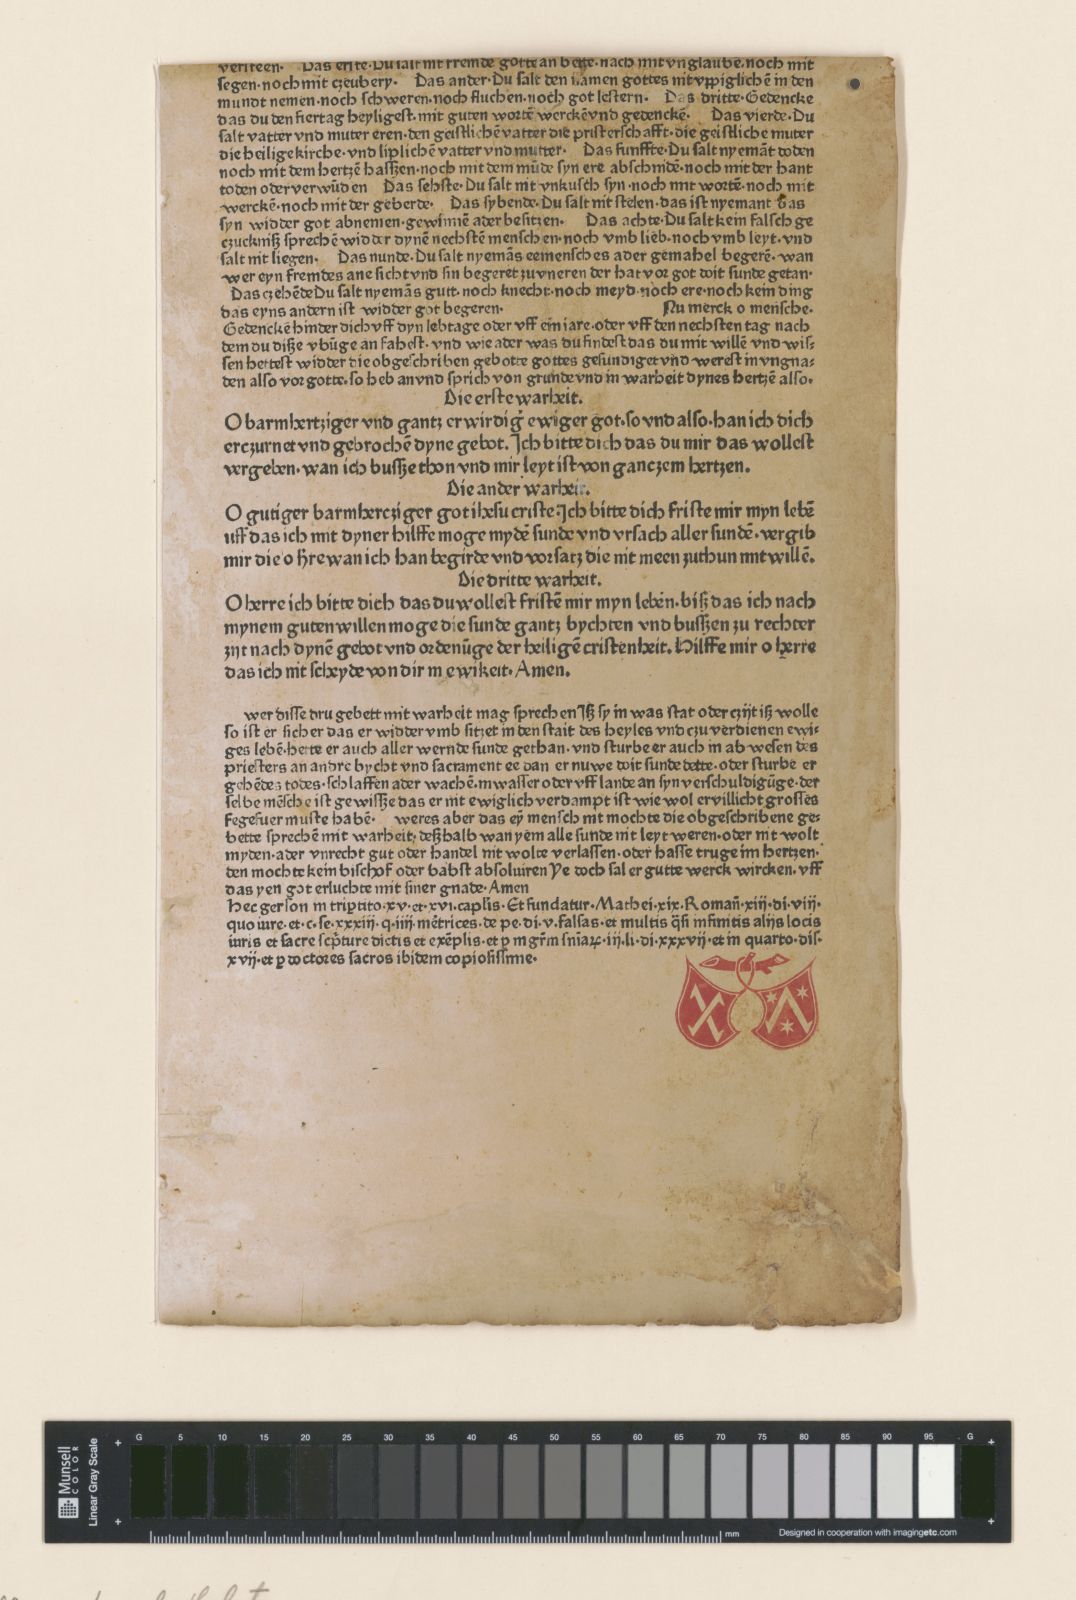 versteen· Das erste·Du salt nit fremde gotte an bette·nach mit vnglaube·noch mit
segen·noch mit czeubery· Das ander·Du salt den namen gottes nit vppiglichē in den
mundt nemen·noch schweren·noch fluchen·noch got lestern· Das dritte·Gedencke
das du den fiertag heyligest·mit guten wortē werckēvnd gedenckē· Das vierde·Du
salt vatter vnd muter eren·den geistlichē vatter die pristerschafft·die geistliche muter
die heilige kirche·vnd liplichē vatter vnd mutter· Das funffte·Du salt nyemāt toden
noch mit dem hertzē hasszen·noch mit dem mūde syn ere abschnidē·noch mit der hant
toden oder verwūden Das sehste·Du salt nit vnkusch syn·noch mit wortē·noch mit
werckē·noch mit der geberde· Das sybende·Du salt nit stelen·das ist nyemant das
syn widder got abnemen·gewinnē ader besitzen· Das achte·Du salt kein falsch ge
czuckniß sprechē widder dynē nechstē menschen·noch vmb lieb·noch vmb leyt·vnd
salt nit liegen· Das nunde·Du salt nyemās eemensches ader gemahel begerē·wan
wer eyn fremdes ane sicht vnd sin begeret zu vneren der hat vor got doit sunde getan·
Das czehēde Du salt nyemās gutt·noch knecht·noch meyd·noch ere·noch kein ding
das eyns andern ist widder got begeren· Nu merck o mensche·
Gedenckē hinder dich vff dyn lebtage oder vff ein iare·oder vff den nechsten tag nach
dem du diße vbūge an fahest·vnd wie ader was du findest das du mit willē vnd wis⸗
sen hettest widder die obgeschriben gebotte gottes gesundiget vnd werest in vngna⸗
den also vor gotte·so heb an vnd sprich von grunde vnd in warheit dynes hertzē also·
Die erste warheit.
O barmhertziger vnd gantz erwirdig̃ ewiger got·so vnd also·han ich dich
erczurnet vnd gebrochē dyne gebot. Ich bitte dich das du mir das wollest
vergeben·wan ich bussze thon vnd mir leyt ist von ganczem hertzen.
Die ander warheit.
O gutiger barmhercziger got ihesu criste·Ich bitte dich friste mir myn lebē
uff das ich mit dyner hilffe moge mydē sunde vnd vrsach aller sundē·vergib
mir die o h̄re wan ich han begirde vnd vorsatz die nit meen zuthun mit willē.
Die dritte warheit.
O herre ich bitte dich das du wollest fristē mir myn leben·biß das ich nach
mynem guten willen moge die sunde gantz bychten vnd busszen zu rechter
zijt nach dynē gebot vnd ordenūge der heiligē cristenheit. Hilffe mir o herre
das ich nit scheyde von dir in ewikeit·Amen.
wer disse dru gebett mit warheit mag sprechen Iß sy in was stat oder czijt iß wolle
so ist er sicher das er widder vmb sitzet in den stait des heyles vnd czu verdienen ewi⸗
ges lebē·hette er auch aller wernde sunde gethan·vnd sturbe er auch in ab wesen des
priesters an andre bycht vnd sacrament ee dan er nuwe doit sunde dette·oder sturbe er
gehēdes todes·schlaffen ader wachē·in wasser oder vff lande an syn verschuldigūge·der
selbe mēsche ist gewissze das er nit ewiglich verdampt ist wie wol er villicht grosses
fegefuer muste habē· weres aber das eȳ mensch nit mochte die obgeschribene ge⸗
bette sprechē mit warheit·deßhalb wan yēm alle sunde nit leyt weren·oder nit wolt
myden·ader vnrecht gut oder handel nit wolte verlassen·oder hasse truge im hertzen·
den mochte kein bischof oder babst absoluiren Ye doch sal er gutte werck wircken·vff
das yen got erluchte mit siner gnade·Amen
Hec gerson in triptito·xv·et·xvi·caplis·Et fundatur·Mathei·xix·Romañ·xiij·di·viij·
quo iure·et·c·se·xxxiij·q·iiij·mētrices·de pe·di·v·falsas·et multis q̄si infinitis alijs locis
iuris et sacre scp̄ture dictis et exēplis·et p mgr̄m snīaꝝ·iij·li·di·xxxvij·et in quarto·dis·
xvij·et p doctores sacros ibidem copiosissime·
Munsell
COLOR
Linear Gray Scale
G 5 10 15 20 25 30 35 40 45 50 55 60 65 70 75 80 85 90 95 G
mm
Designed in cooperation with imagingetc.com